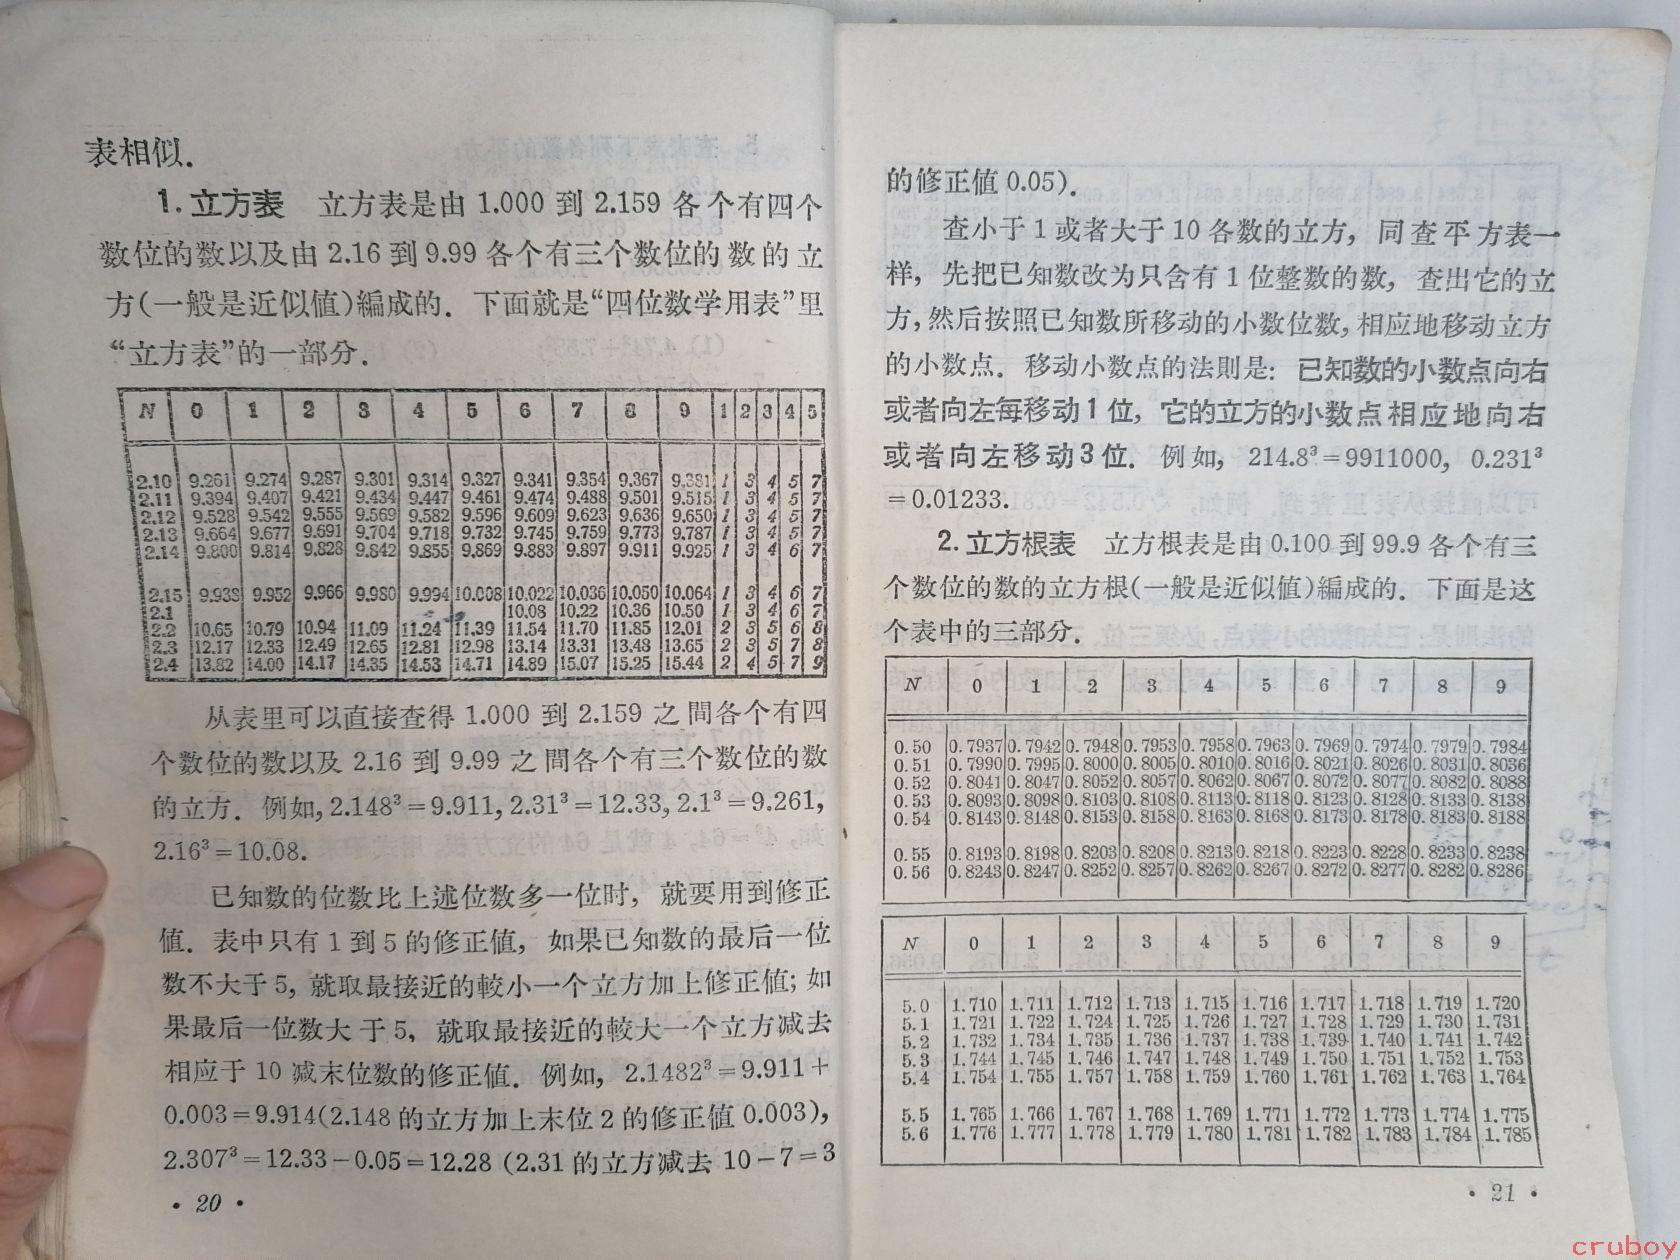 表相似.
1. 立方表 立方表是由 1.000 到 2.159 各个有四个
数位的数以及由 2.16 到 9.99 各个有三个数位的数的立
方(一般是近似值)編成的. 下面就是“四位数学用表”里
“立方表”的一部分.
N 0 1 2 3 4 5 6 7 8 9 1 2 3 4 5
2.10 9.261 9.274 9.287 9.301 9.314 9.327 9.341 9.354 9.367 9.381 1 3 4 5 7
2.11 9.394 9.407 9.421 9.434 9.447 9.461 9.474 9.488 9.501 9.515 1 3 4 5 7
2.12 9.528 9.542 9.555 9.569 9.582 9.596 9.609 9.623 9.636 9.650 1 3 4 5 7
2.13 9.664 9.677 9.691 9.704 9.718 9.732 9.745 9.759 9.773 9.787 1 3 4 5 7
2.14 9.800 9.814 9.828 9.842 9.855 9.869 9.883 9.897 9.911 9.925 1 3 4 6 7
2.15 9.938 9.952 9.966 9.980 9.994 10.008 10.022 10.036 10.050 10.064 1 3 4 6 7
2.1 10.08 10.22 10.36 10.50 1 3 4 6 7
2.2 10.65 10.79 10.94 11.09 11.24 11.39 11.54 11.70 11.85 12.01 2 3 5 6 8
2.3 12.17 12.33 12.49 12.65 12.81 12.98 13.14 13.31 13.48 13.65 2 3 5 7 8
2.4 13.82 14.00 14.17 14.35 14.53 14.71 14.89 15.07 15.25 15.44 2 4 5 7 9
从表里可以直接查得 1.000 到 2.159 之間各个有四
个数位的数以及 2.16 到 9.99 之間各个有三个数位的数
的立方. 例如, 2.148³=9.911, 2.31³=12.33, 2.1³=9.261,
2.16³=10.08.
已知数的位数比上述位数多一位时, 就要用到修正
值. 表中只有 1 到 5 的修正值, 如果已知数的最后一位
数不大于 5, 就取最接近的較小一个立方加上修正值; 如
果最后一位数大于 5, 就取最接近的較大一个立方减去
相应于 10 减末位数的修正值. 例如, 2.1482³=9.911+
0.003=9.914(2.148 的立方加上末位 2 的修正値 0.003),
2.307³=12.33-0.05=12.28 (2.31 的立方减去 10-7=3
· 20 ·
的修正値 0.05).
查小于 1 或者大于 10 各数的立方, 同查平方表一
样, 先把已知数改为只含有 1 位整数的数, 查出它的立
方, 然后按照已知数所移动的小数位数, 相应地移动立方
的小数点. 移动小数点的法則是: 已知数的小数点向右
或者向左每移动 1 位, 它的立方的小数点相应地向右
或者向左移动 3 位. 例如, 214.8³=9911000, 0.231³
=0.01233.
2. 立方根表 立方根表是由 0.100 到 99.9 各个有三
个数位的数的立方根(一般是近似値)編成的. 下面是这
个表中的三部分.
N 0 1 2 3 4 5 6 7 8 9
0.50 0.7937 0.7942 0.7948 0.7953 0.7958 0.7963 0.7969 0.7974 0.7979 0.7984
0.51 0.7990 0.7995 0.8000 0.8005 0.8010 0.8016 0.8021 0.8026 0.8031 0.8036
0.52 0.8041 0.8047 0.8052 0.8057 0.8062 0.8067 0.8072 0.8077 0.8082 0.8088
0.53 0.8093 0.8098 0.8103 0.8108 0.8113 0.8118 0.8123 0.8128 0.8133 0.8138
0.54 0.8143 0.8148 0.8153 0.8158 0.8163 0.8168 0.8173 0.8178 0.8183 0.8188
0.55 0.8193 0.8198 0.8203 0.8208 0.8213 0.8218 0.8223 0.8228 0.8233 0.8238
0.56 0.8243 0.8247 0.8252 0.8257 0.8262 0.8267 0.8272 0.8277 0.8282 0.8286
N 0 1 2 3 4 5 6 7 8 9
5.0 1.710 1.711 1.712 1.713 1.715 1.716 1.717 1.718 1.719 1.720
5.1 1.721 1.722 1.724 1.725 1.726 1.727 1.728 1.729 1.730 1.731
5.2 1.732 1.734 1.735 1.736 1.737 1.738 1.739 1.740 1.741 1.742
5.3 1.744 1.745 1.746 1.747 1.748 1.749 1.750 1.751 1.752 1.753
5.4 1.754 1.755 1.757 1.758 1.759 1.760 1.761 1.762 1.763 1.764
5.5 1.765 1.766 1.767 1.768 1.769 1.771 1.772 1.773 1.774 1.775
5.6 1.776 1.777 1.778 1.779 1.780 1.781 1.782 1.783 1.784 1.785
· 21 ·
cruboy